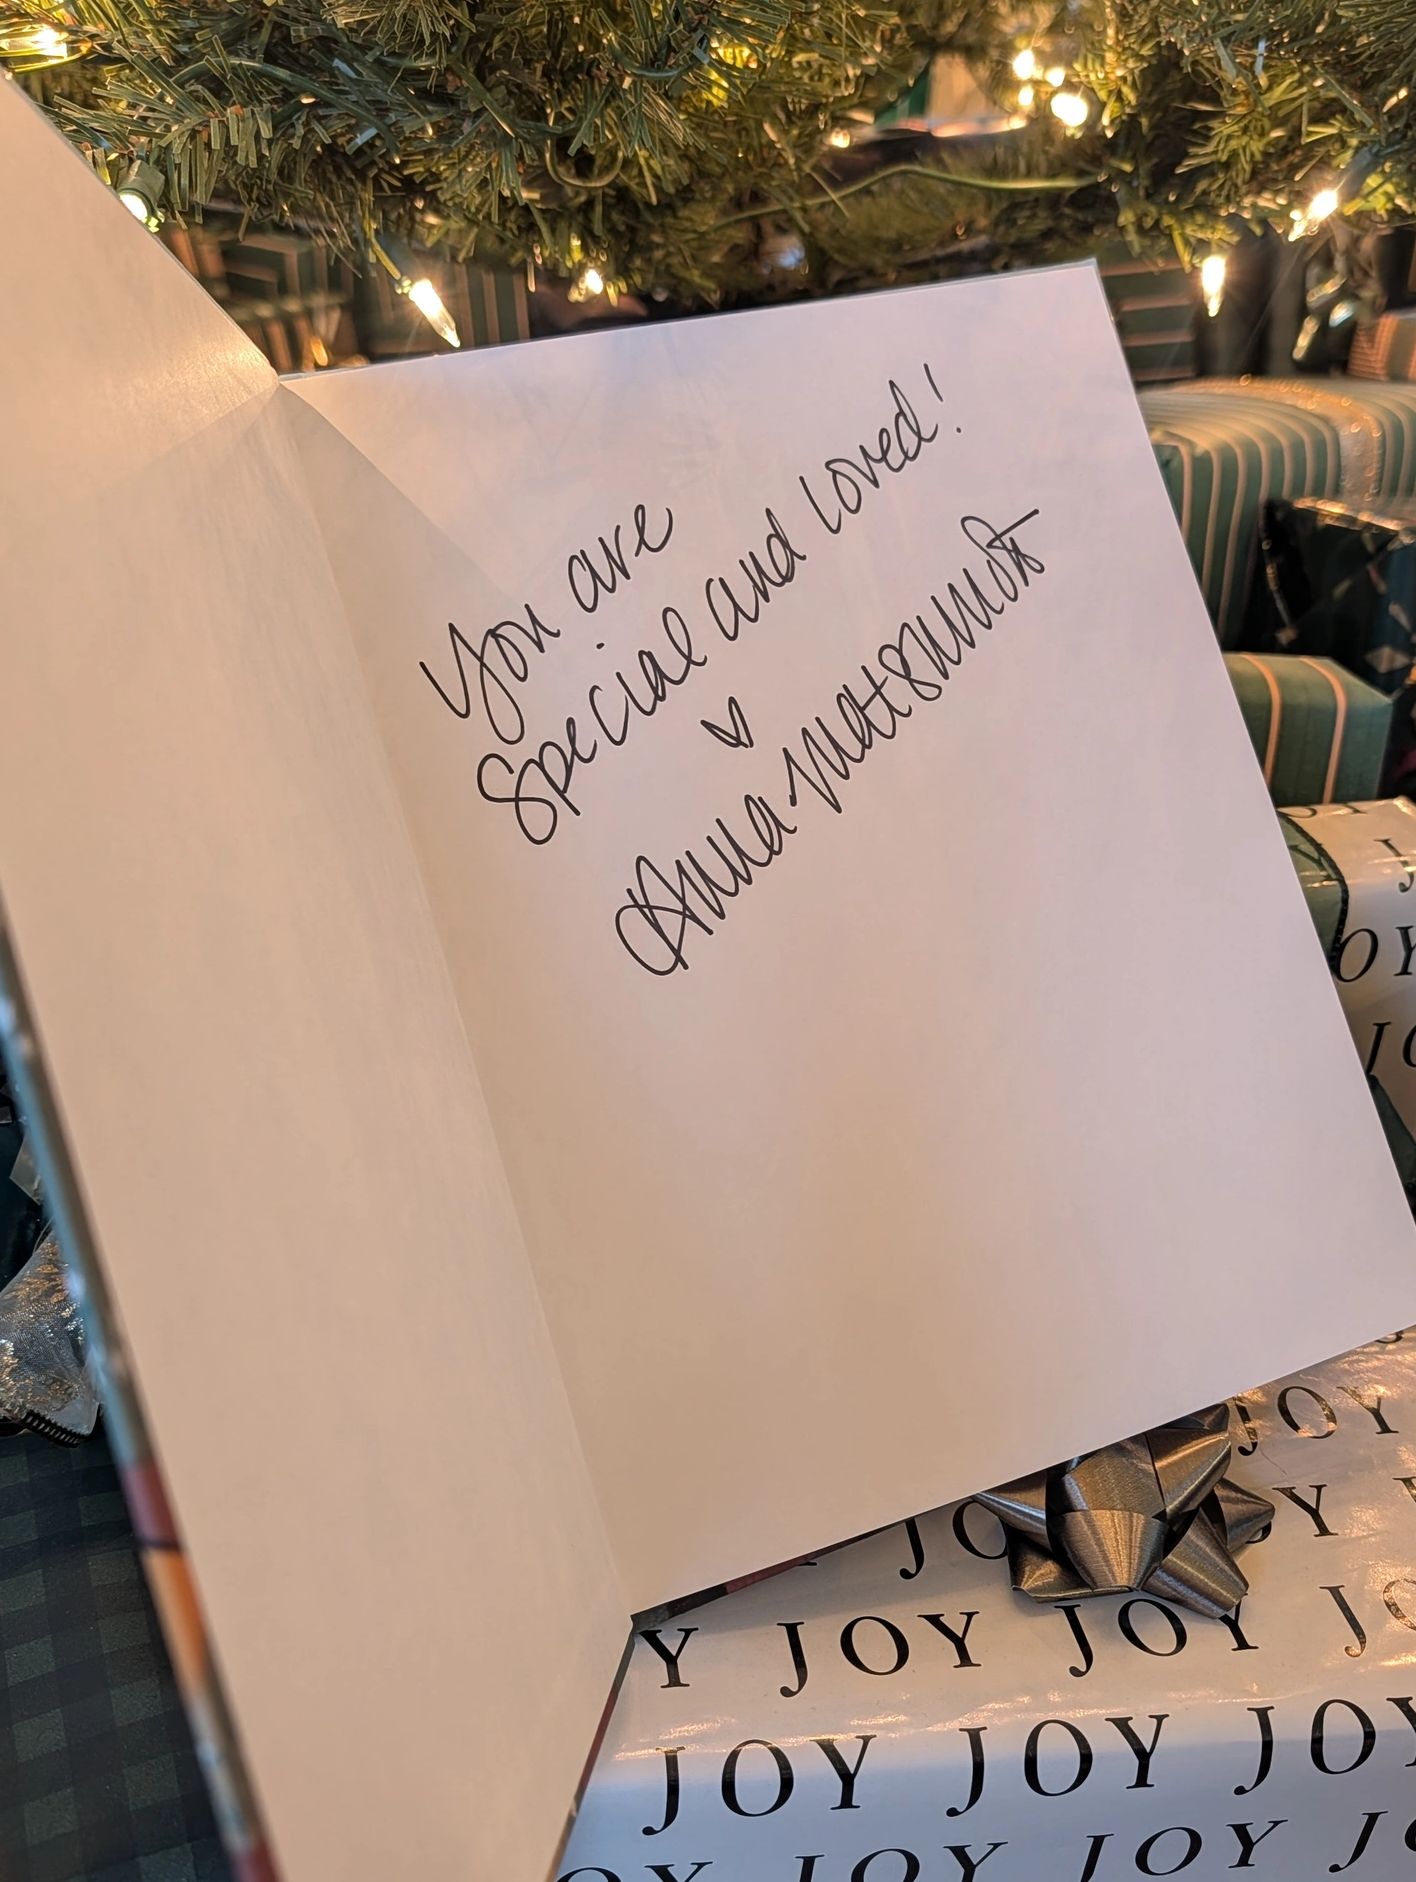 You are
Special and loved!
JOY
JOY
JOY
JOY JOY
JOY JOY JOY
JOY JOY